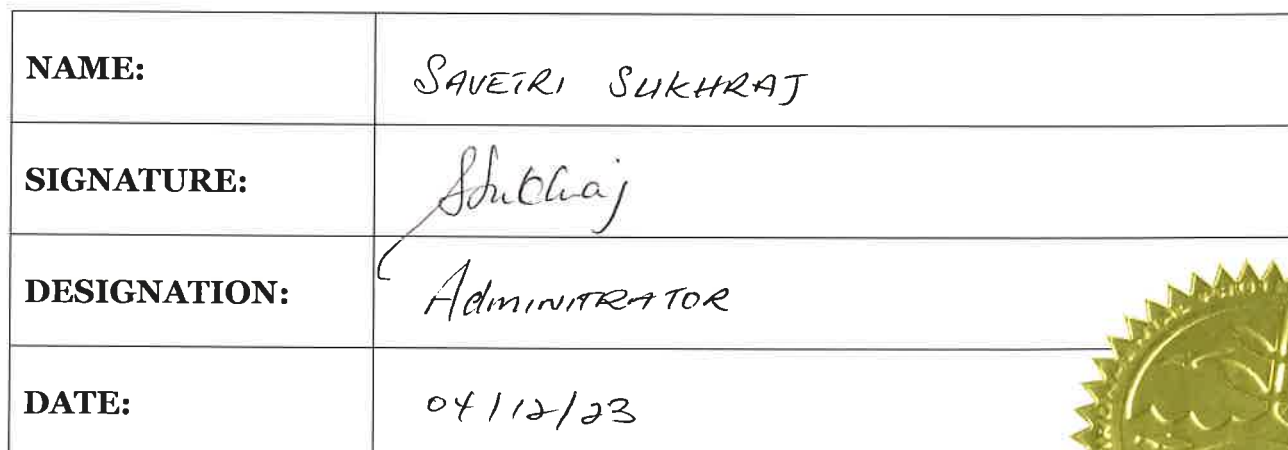 NAME: SAVETRI SUKHRAJ
SIGNATURE: SSukhraj
DESIGNATION: AdminiTRATOR
DATE: 04/12/23